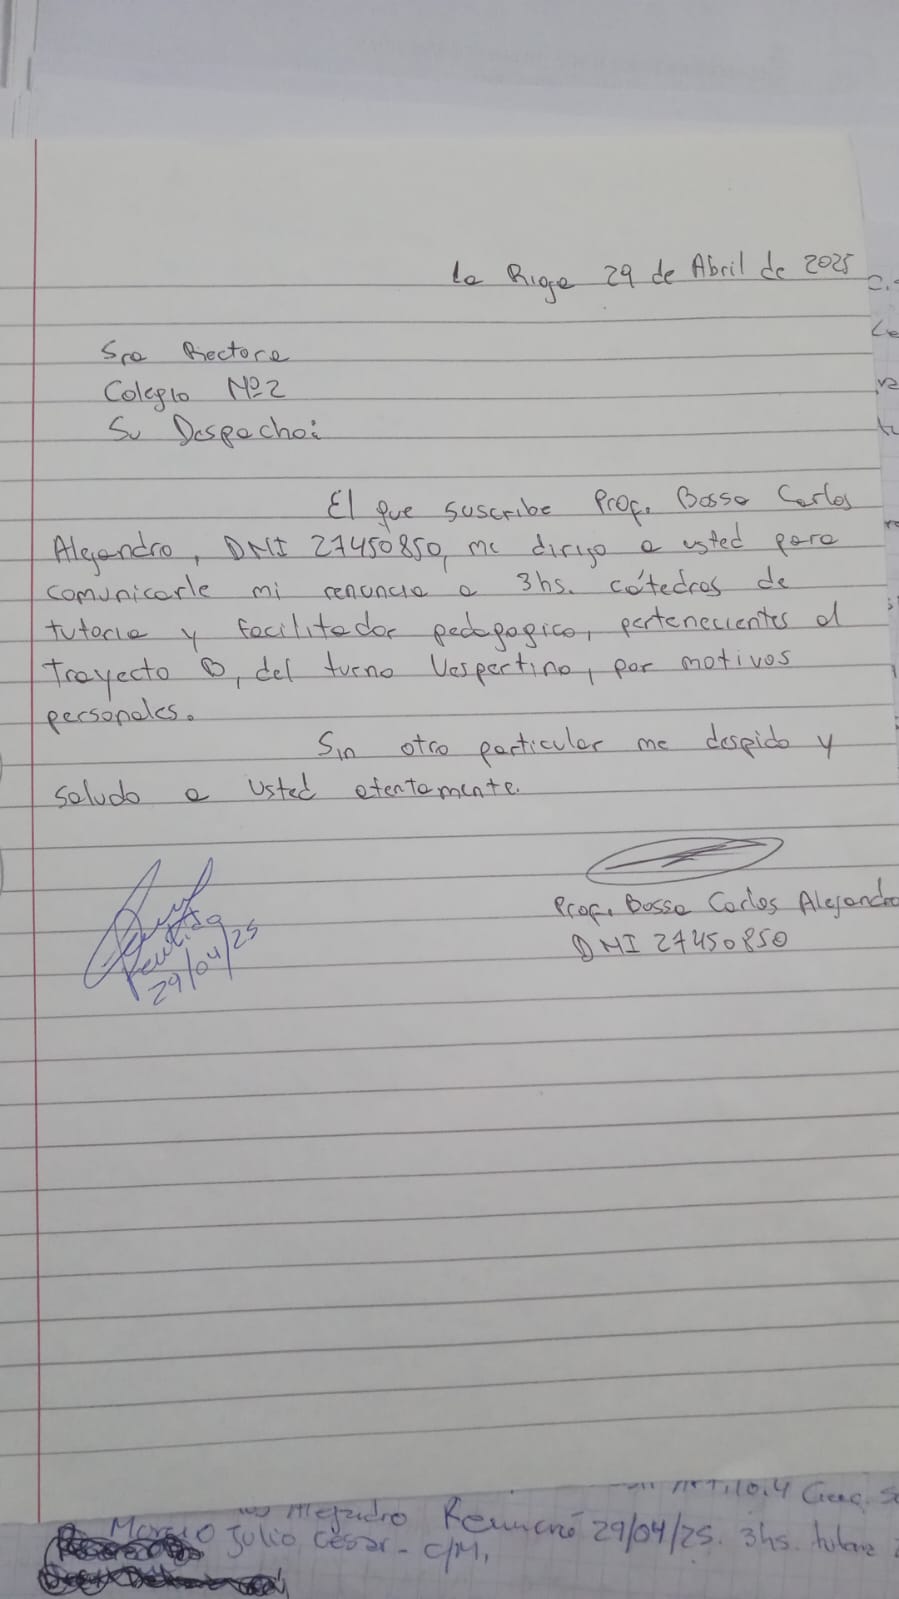 La Rioja 29 de Abril de 2025
Sra Rectora
Colegio Nº2
Su Despacho:
El que suscribe Prof. Bosso Carlos
Alejandro, DNI 27450850, me dirijo a usted para
comunicarle mi renuncia a 3hs. cátedras de
tutoria y facilitador pedagogico, pertenecientes al
Trayecto B, del turno Vespertino, por motivos
personales.
Sin otro particular me despido y
saludo a usted atentamente.
Prof. Bosso Carlos Alejandro
DNI 27450850
29/04/25
Alejandro Renunció 29/04/25. 3hs.
Julio César - C/M,